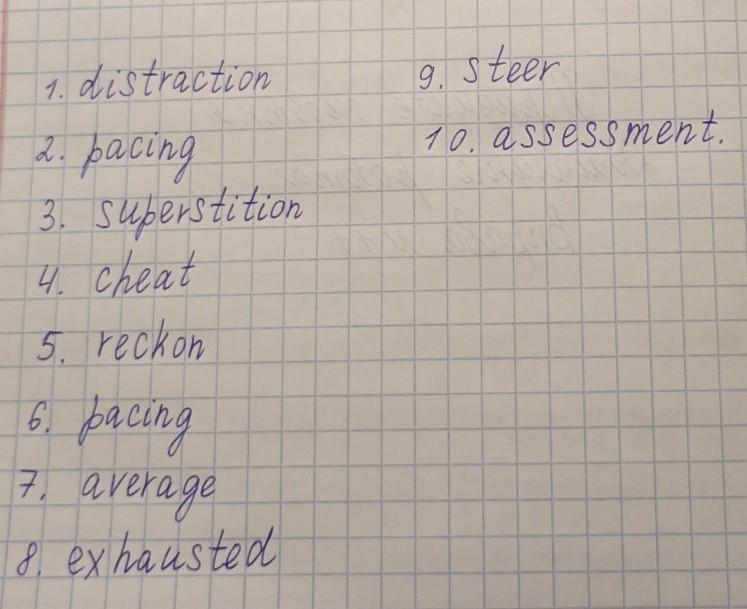 1. distraction
2. pacing
3. superstition
4. cheat
5. reckon
6. pacing
7. average
8. exhausted
9. steer
10. assessment.